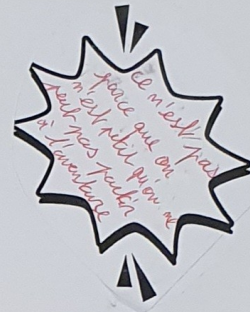 ce n'est pas
parce que on
n'est petit qu'on ne
peut pas partir
à l'aventure